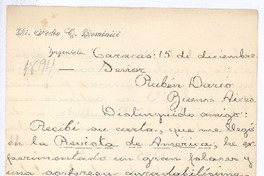 Dr. Pedro C. Dominici
Caracas: 15 de diciembre
Señor
Rubén Darío
Buenos Aires
Distinguido amigo:
Recibí su carta, que me llegó
en la Revista de América, he ex
perimentado un gran placer y
una sorpresa agradabilísima,